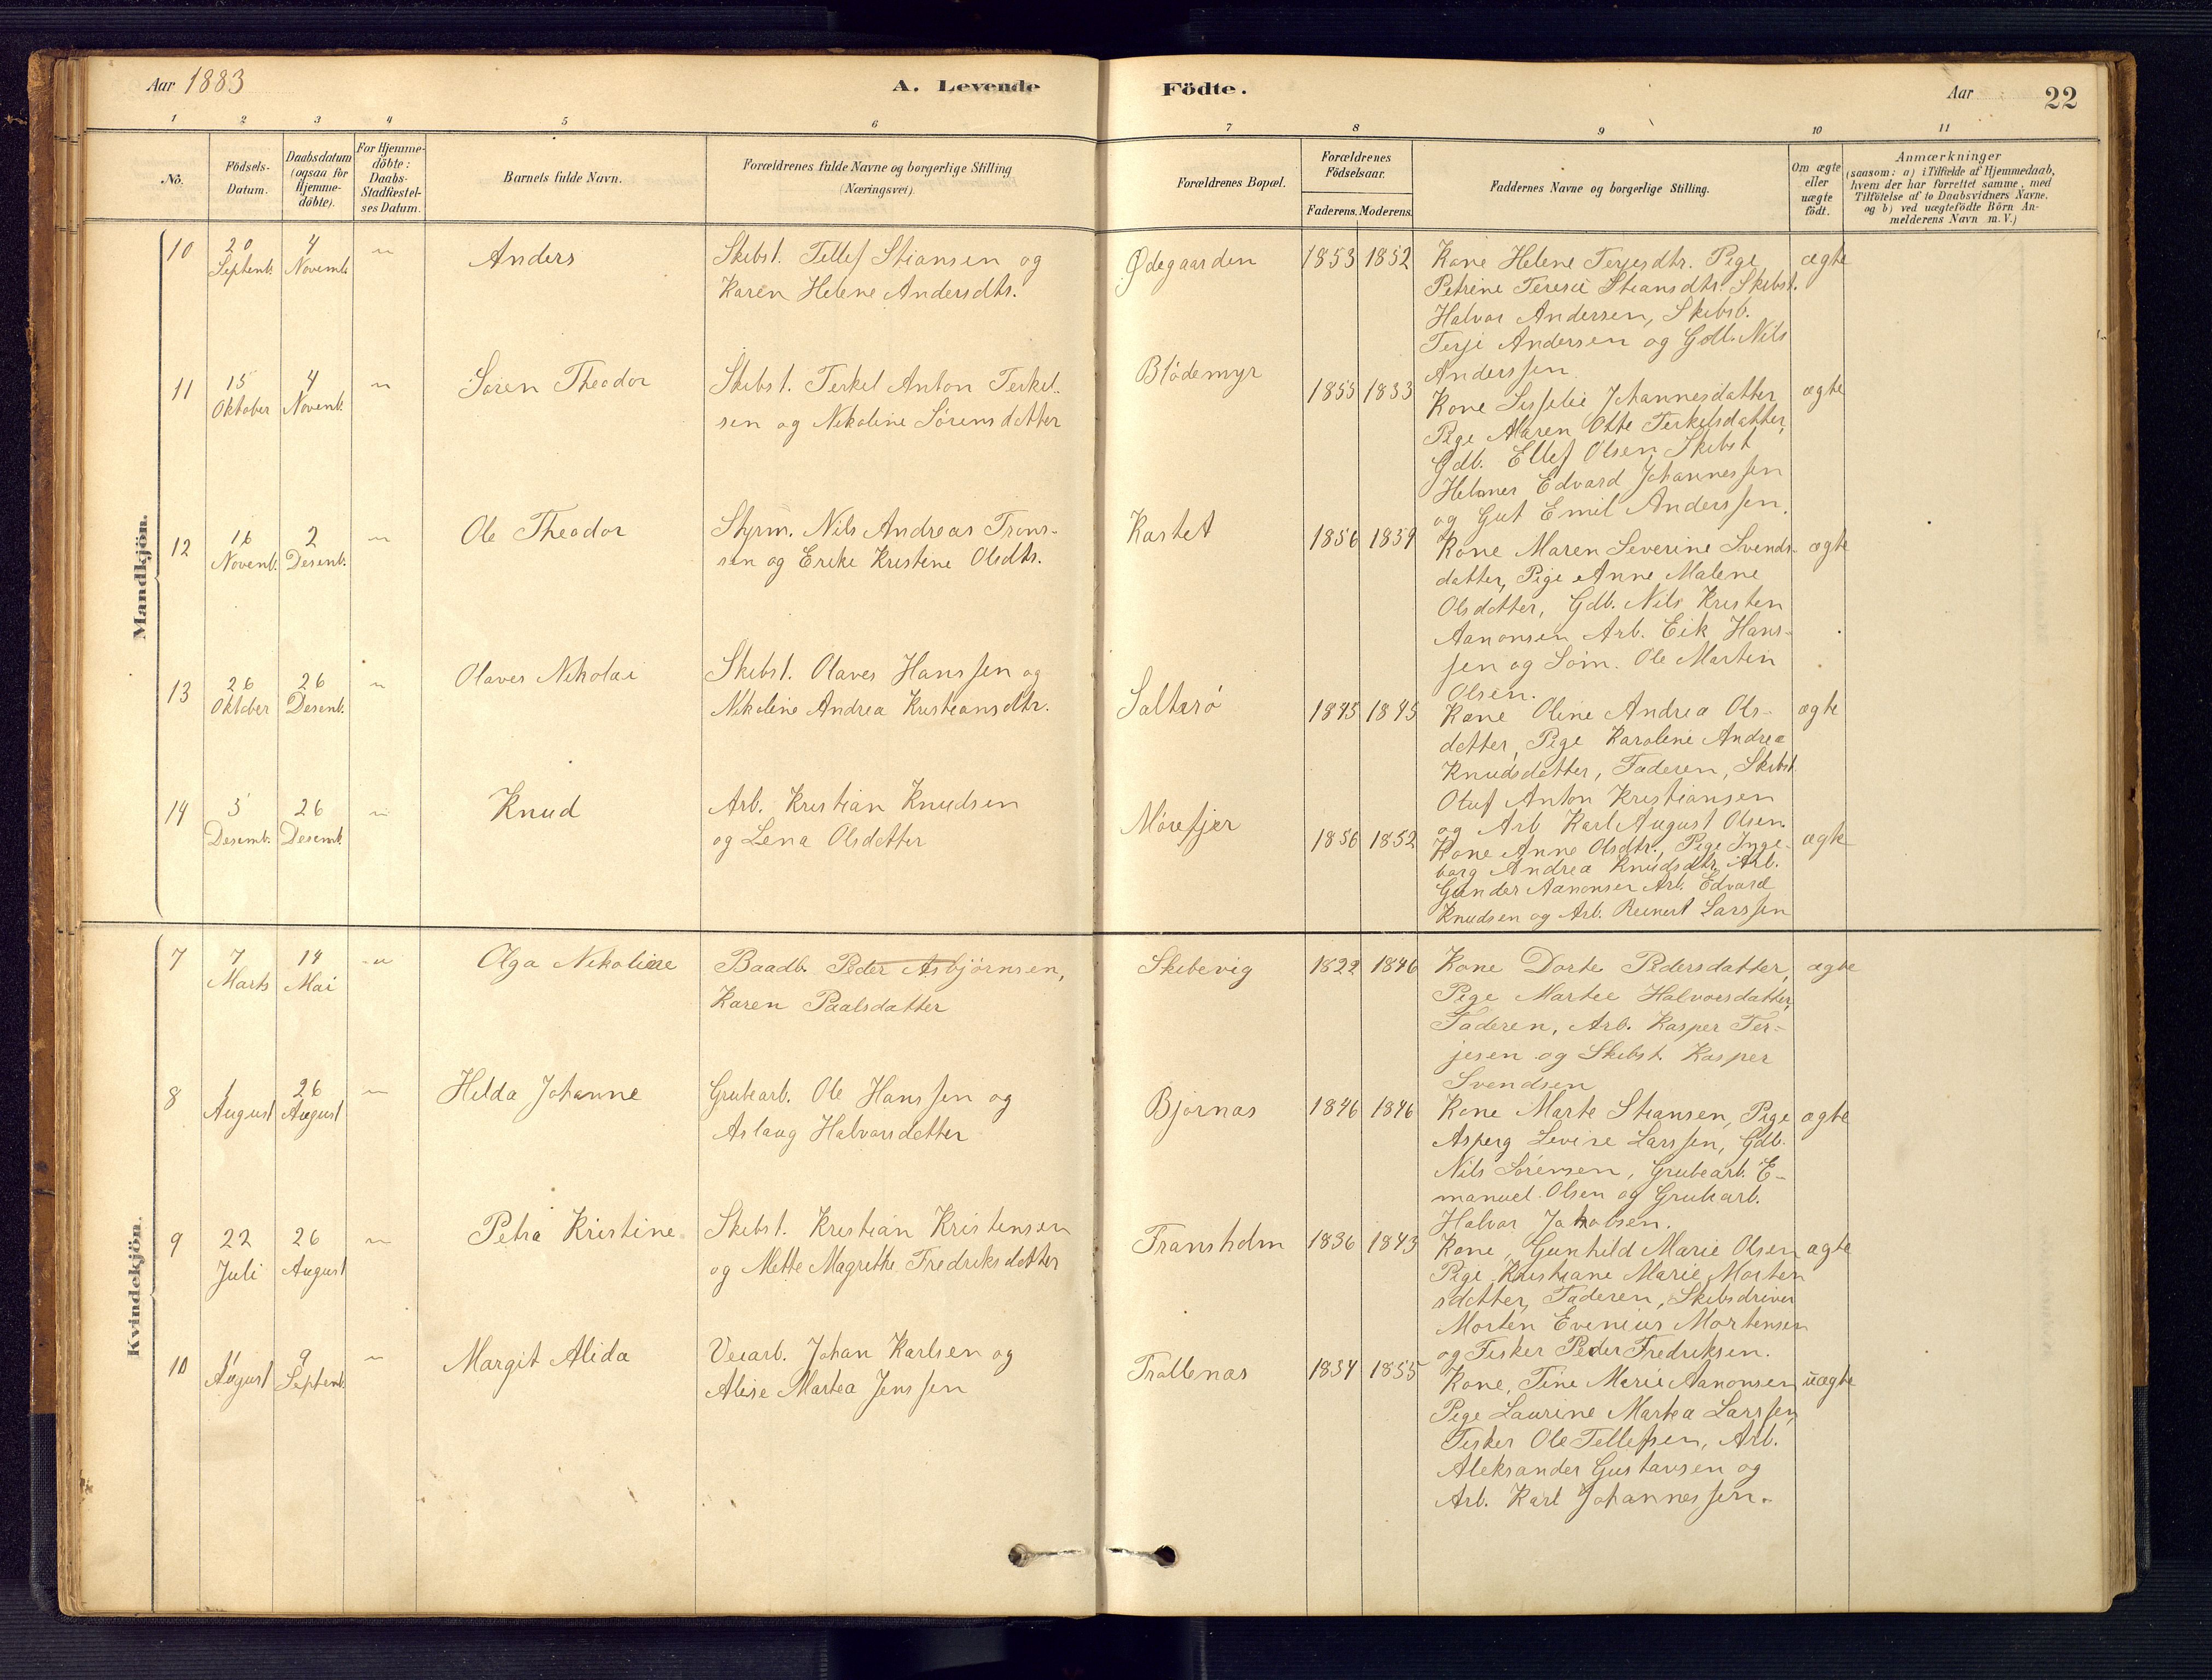 Aar 1883
A. Levende
Födte.
Aar
22
1 2 3 4 5 6 7 8 9 10 11
No.
Födsels-
Datum.
Daabsdatum
(ogsaa for
Hjemme-
döbte).
For Hjemme-
döbte:
Daabs-
Stadfæstel-
ses Datum.
Barnets fulde Navn.
Forældrenes fulde Navne og borgerlige Stilling
(Næringsvei).
Forældrenes Bopæl.
Forældrenes
Födselsaar.
Faderens. Moderens.
Faddernes Navne og borgerlige Stilling.
Om ægte
eller
uægte
födt.
Anmærkninger
(saasom: a) i Tilfælde af Hjemmedaab,
hvem der har forrettet samme, med
Tilföielse af to Daabsvidners Navne,
og b) ved uægtefödte Börn An-
melderens Navn m. V.)
Mandkjön.
10
20
Septemb.
4
Novemb.
"
Anders
Skibst. Tellef Stiansen og
Karen Helene Andersdtr.
Ødegaarden
1853 1852
Kone Helene Terjesdtr. Pige
Petrine Teresie Stiansdtr. Skibst.
Halvor Andersen, Skibsb.
Terje Andersen og Gdb. Nils
Anderssen
ægte
11
15
Oktober
4
Novemb.
"
Sören Theodor
Skibst. Terkel Anton Terkel-
sen og Nikoline Sørensdatter
Blödemyr
1855 1853
Kone Sisselie Johannesdatter
Pige Maren Otte Terkelsdatter,
Gdb. Ellef Olsen Skibst
Helmer Edvard Johannessen
og Gut Emil Anderssen.
ægte
12
16
Novemb.
2
Desemb.
"
Ole Theodor
Styrm. Nils Andreas Trons-
sen og Erike Kristine Olsdtr.
Kastet
1856 1859
Kone Maren Severine Svends-
datter, Pige Anne Malene
Olsdatter, Gdb. Nils Kristen
Aanonsen Arb. Eik Hans-
sen og Söm. Ole Martin
Olsen.
ægte
13
26
Oktober
26
Desemb.
"
Olaves Nikolai
Skibst. Olaves Hanssen og
Nikoline Andrea Kristiansdtr.
Salterö
1845 1845
Kone Oline Andrea Ols-
datter, Pige Karoline Andrea
Knudsdatter, Faderen, Skibst
Oluf Anton Kristiansen
og Arb Karl August Olsen.
ægte
14
5
Desemb.
26
Desemb.
"
Knud
Arb. Kristian Knudsen
og Lena Olsdatter
Mörefjer
1856 1852
Kone Anne Olsdtr., Pige Inge-
borg Andrea Knudsdtr, Arb.
Gunder Aanonsen Arb. Edvard
Knudsen og Arb. Reinert Larssen
ægte
Kvindekjön.
7
7
Marts
14
Mai
"
Olga Nikoline
Baadb. Peder Asbjörnsen,
Karen Paalsdatter
Skibevig
1822 1846
Kone Dorte Pedersdatter,
Pige Martee Halvorsdatter,
Faderen, Arb. Kasper Ter-
jesen og Skibst. Kasper
Svendsen
ægte
8
1
August
26
August
"
Hilda Johanne
Grubearb. Ole Hanssen og
Aslaug Halvorsdatter
Björnas
1846 1846
Kone Marte Stiansen, Pige
Asperg Levine Larssen, Gdb.
Nils Sörensen, Grubearb. E-
manuel Olsen og Grubearb.
Halvor Jakobsen.
ægte
9
22
Juli
26
August
"
Petra Kristine
Skibst. Kristian Kristensen
og Mette Magrethe Fredriksdatter
Fransholm
1836 1843
Kone, Gunhild Marie Olsen
Pige Kristiane Marie Morten
sdatter, Faderen, Skibsdriver
Morten Evenius Mortensen
og Fisker Peder Fredriksen.
ægte
10
11
August
9
Septemb.
"
Margit Alida
Veiarb. Johan Karlsen og
Alise Martea Jenssen
Trollenas
1854 1855
Kone, Tine Marie Aanonsen
Pige Laurine Martea Larssen,
Fisker Ole Tellefsen, Arb.
Aleksander Gustavsen og
Arb. Karl Johannessen.
uægte